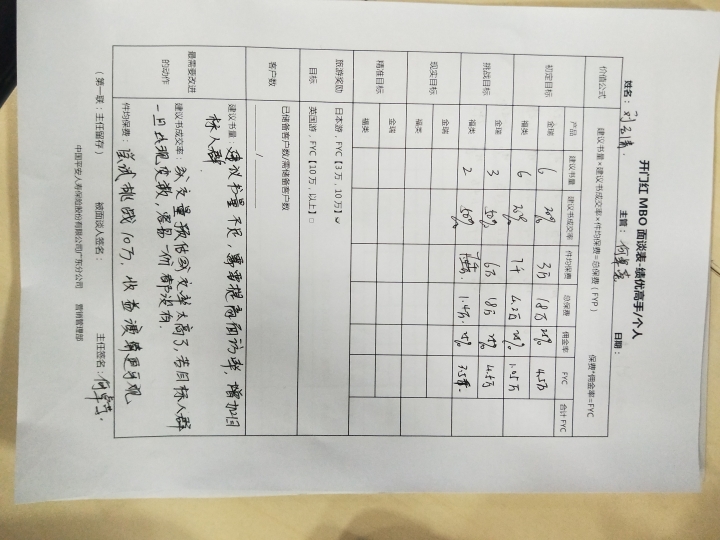 开门红 MBO 面谈表-绩优高手/个人
姓名： 主管： 日期：
价值公式 建议书量×建议书成交率×件均保费＝总保费（FYP） 保费*佣金率=FYC
产品 建议书量 建议书成交率 件均保费 总保费 佣金率 FYC 合计 FYC
初定目标 金瑞 6 20% 3万 18万 25% 4.5万
福类 6 20% 7千 4.2万 25% 1.05万
挑战目标 金瑞 3 50% 6万 18万 25% 4.5万
福类 2 50% 7千 1.4万 25%
现实目标 金瑞
福类
精准目标 金瑞
福类
旅游奖励 日本游，FYC【3 万，10 万】
目标 英国游，FYC【10 万，以上】□
客户数 已储备客户数/需储备客户数
/
最需要改进的动作 建议书量：建议书量不足，需要提高面访率，增加目
标人群.
建议书成交率：成交量预估成交率太高了，若目标人群
一旦出现变数，容易一所都没有.
件均保费：尝试挑战10万，收益演算更可观
（第一联：主任留存） 被面谈人签名： 主任签名：
中国平安人寿保险股份有限公司广东分公司 营销管理部